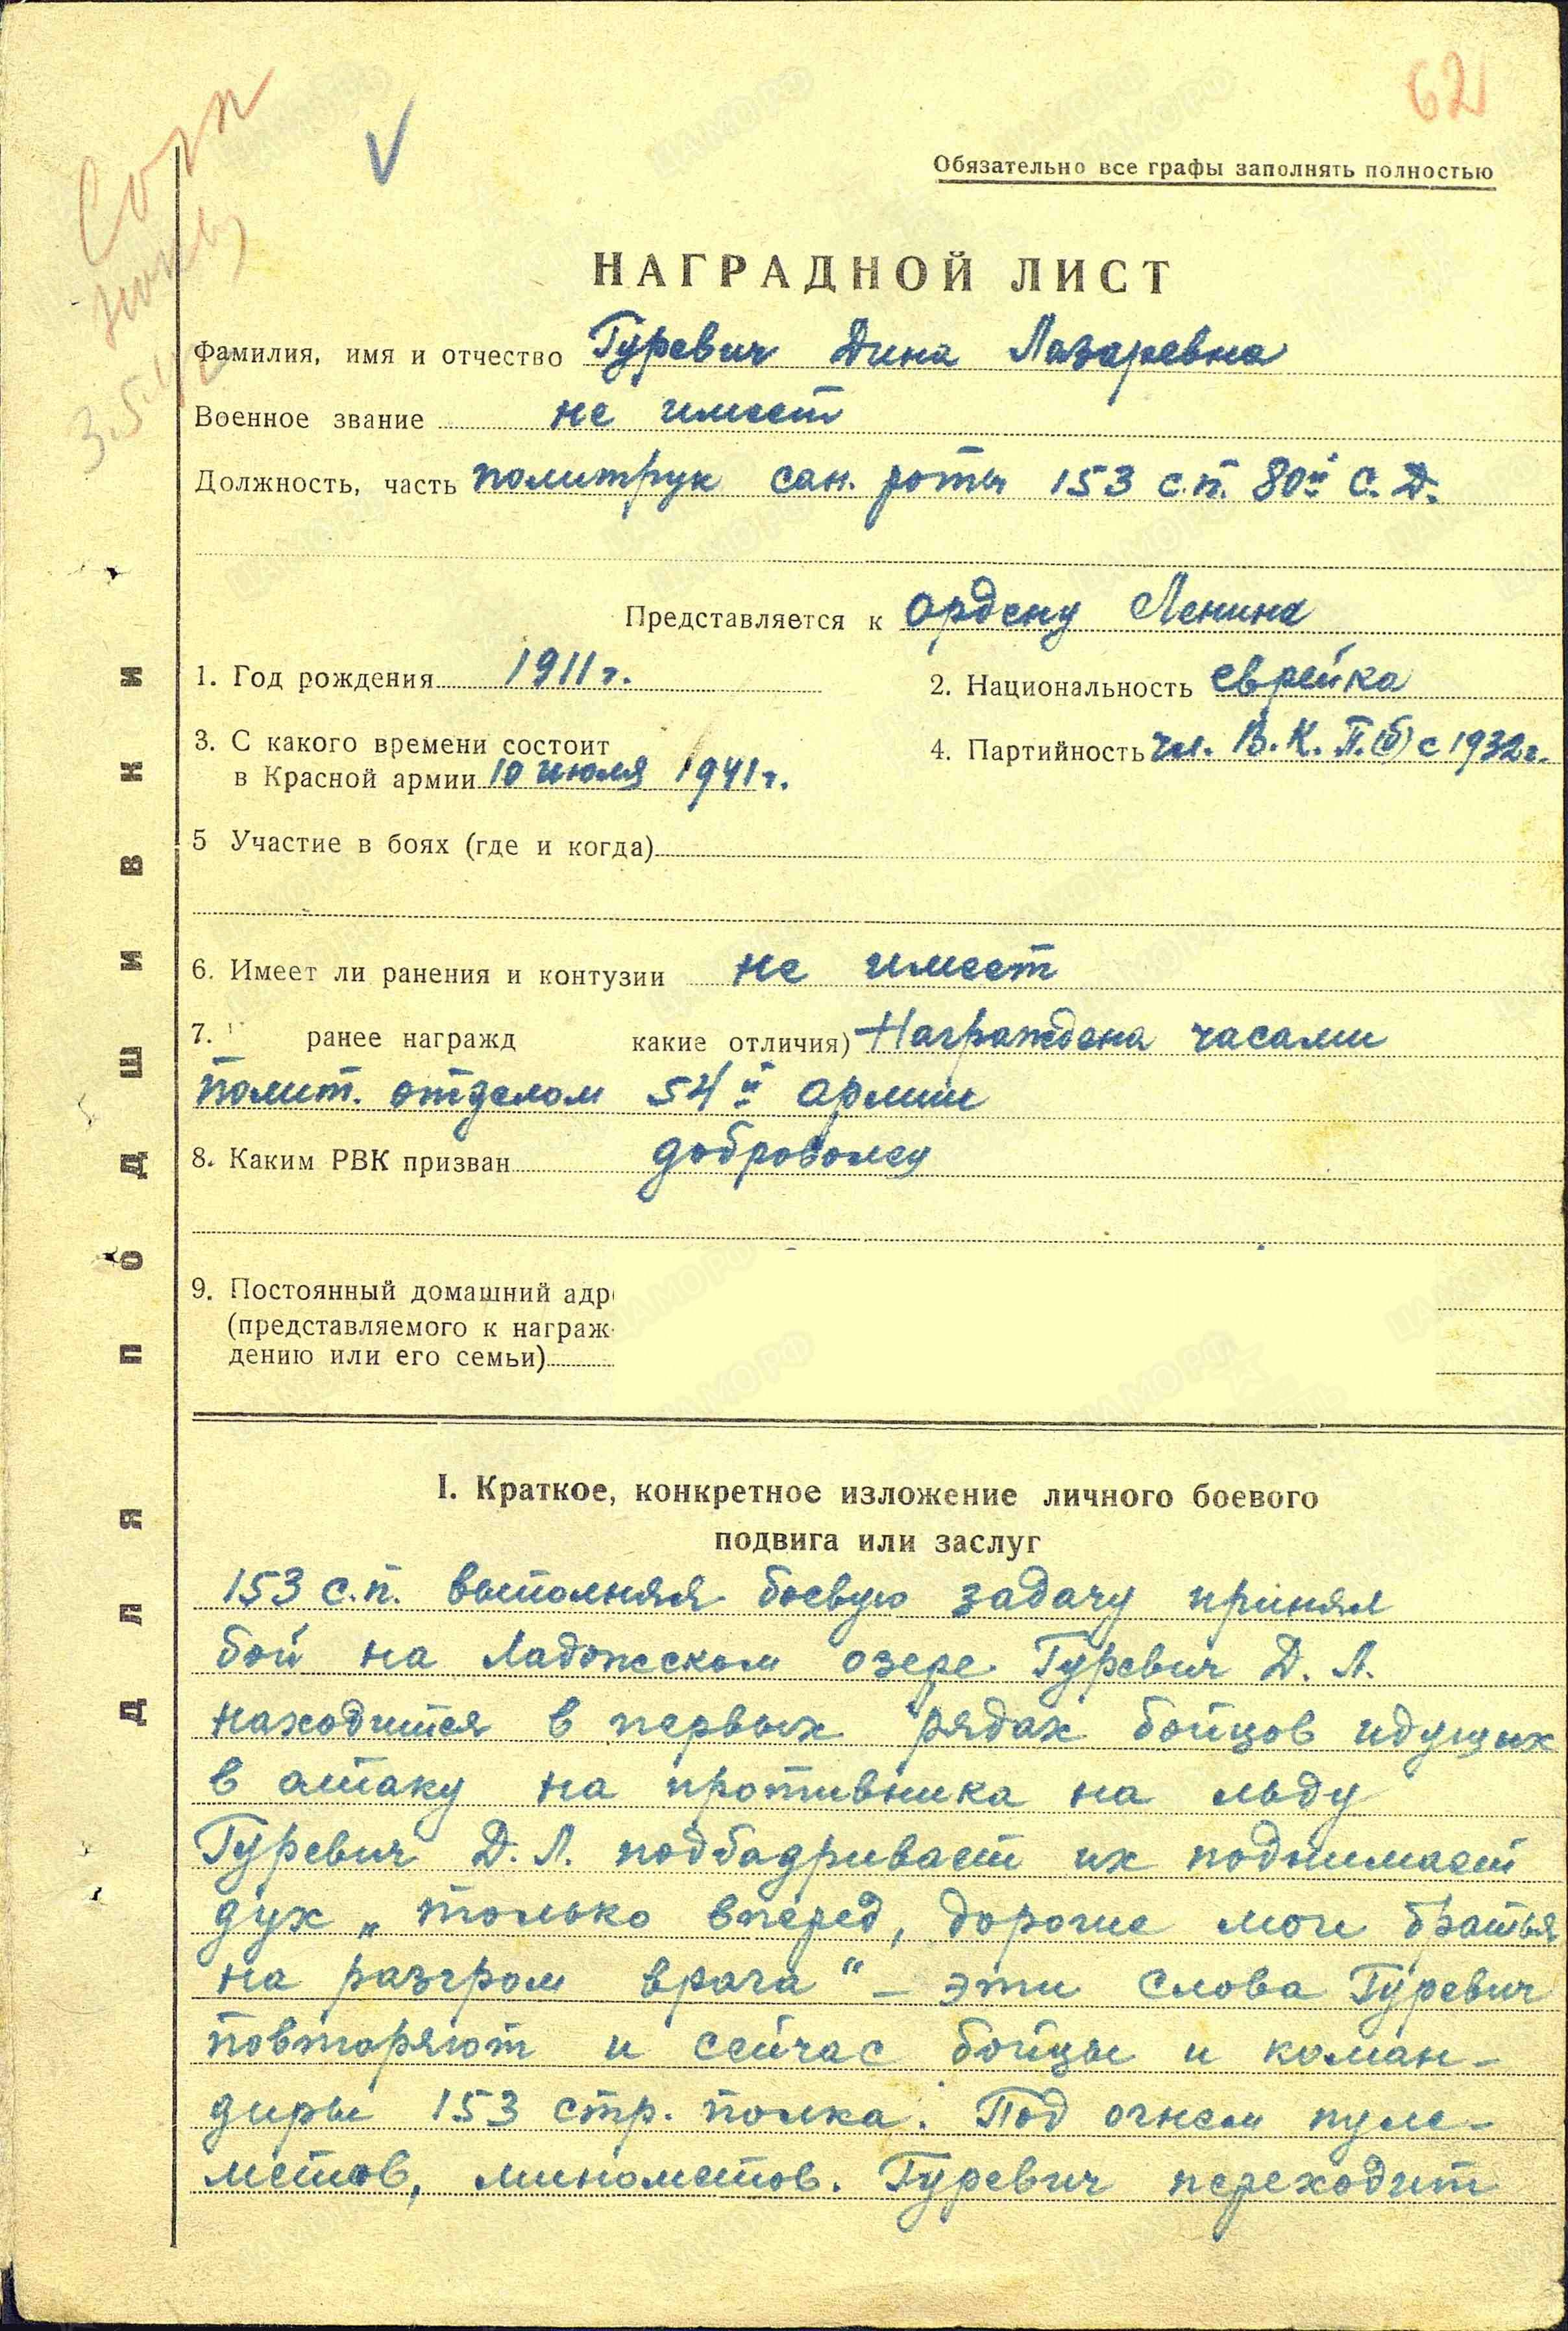 62
Обязательно все графы заполнять полностью
НАГРАДНОЙ ЛИСТ
Фамилия, имя и отчество Гуревич Дина Лазаревна
Военное звание не имеет
Должность, часть политрук сан. роты 153 с.п. 80й С.Д.
Представляется к ордену Ленина
1. Год рождения 1911 г. 2. Национальность еврейка
3. С какого времени состоит
в Красной армии 10 июля 1941 г. 4. Партийность чл. В.К.П.(б) с 1932 г.
5 Участие в боях (где и когда)
6. Имеет ли ранения и контузии не имеет
7. ранее награжд какие отличия) Награждена часами
полит. отделом 54й армии
8. Каким РВК призван доброволец
9. Постоянный домашний адр
(представляемого к награж-
дению или его семьи)
I. Краткое, конкретное изложение личного боевого
подвига или заслуг
153 с.п. выполняя боевую задачу принял
бой на Ладожском озере Гуревич Д. Л.
находится в первых рядах бойцов идущих
в атаку на противника на льду
Гуревич Д. Л. подбадривает их поднимает
дух „только вперед, дорогие мои братья
на разгром врага" – эти слова Гуревич
повторяют и сейчас бойцы и коман-
диры 153 стр. полка. Под огнем пуле-
метов, минометов. Гуревич переходит
ДЛЯ ПОДШИВКИ